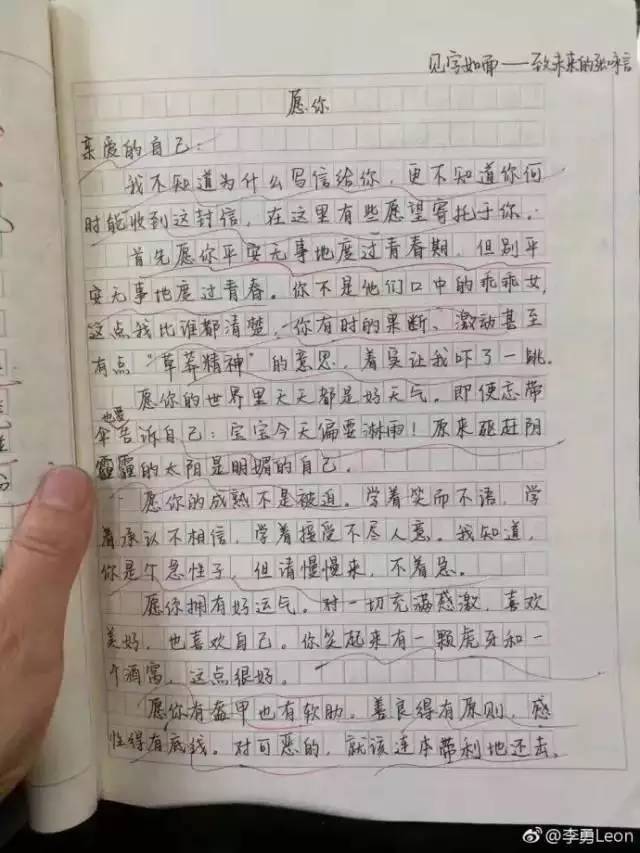 见字如面——致未来的张咏言
愿你
亲爱的自己：
我不知道为什么写信给你，更不知道你何
时能收到这封信，在这里有些愿望寄托于你。
首先愿你平安无事地度过青春期，但别平
安无事地度过青春。你不是他们口中的乖乖女，
这点我比谁都清楚，你有时的果断、激动甚至
有点“草莽精神”的意思，着实让我吓了一跳。
愿你的世界里天天都是好天气。即使忘带
伞也要告诉自己：宝宝今天偏要淋雨！原来驱赶阴
霾的太阳是明媚的自己。
愿你的成熟不是被迫。学着笑而不语，学
着承认不相信，学着接受不尽人意。我知道，
你是个急性子，但请慢慢来，不着急。
愿你拥有好运气。对一切充满感激，喜欢
美好，也喜欢自己。你笑起来有一颗虎牙和一
个酒窝，这点很好。
愿你有盔甲也有软肋。善良得有原则，感
性得有底线。对可恶的，就该连本带利地还去。
@李勇Leon